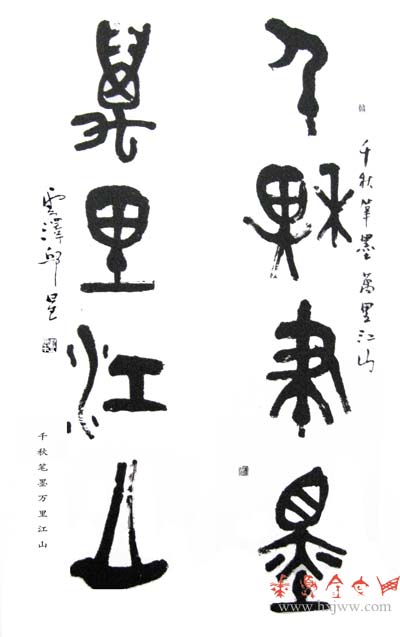 千秋筆墨 萬里江山
千秋筆墨
萬里江山
雲澤邱
千秋笔墨万里江山
www.hxjww.com